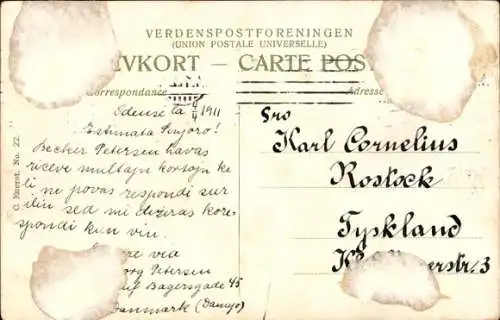 VERDENSPOSTFORENINGEN
(UNION POSTALE UNIVERSELLE)
EVKORT — CARTE POS
Correspondance
Adresse
Odense la 4/4 1911
Estimata Sinjoro!
Becker Petersen havas
riceve multajn kartojn ke
li ne povas respondi sur
ĉin sed mi deziras kore-
spondi kun vin.
via
org Petersen
Bagersgade 45
Danmark (Danujo)
Sro
Karl Cornelius
Rostock
Tyskland
str. 3
C. Enerst. No. 22.